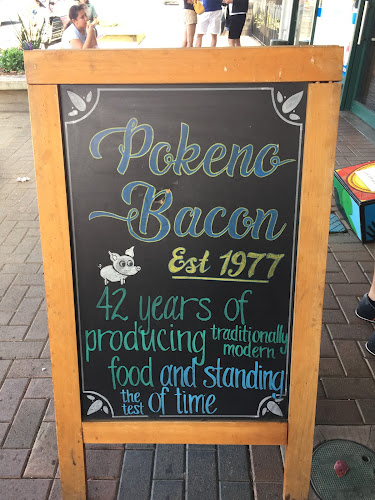 Pokeno
Bacon
Est 1977
42 years of
producing traditionally modern
food and standing
the test of time